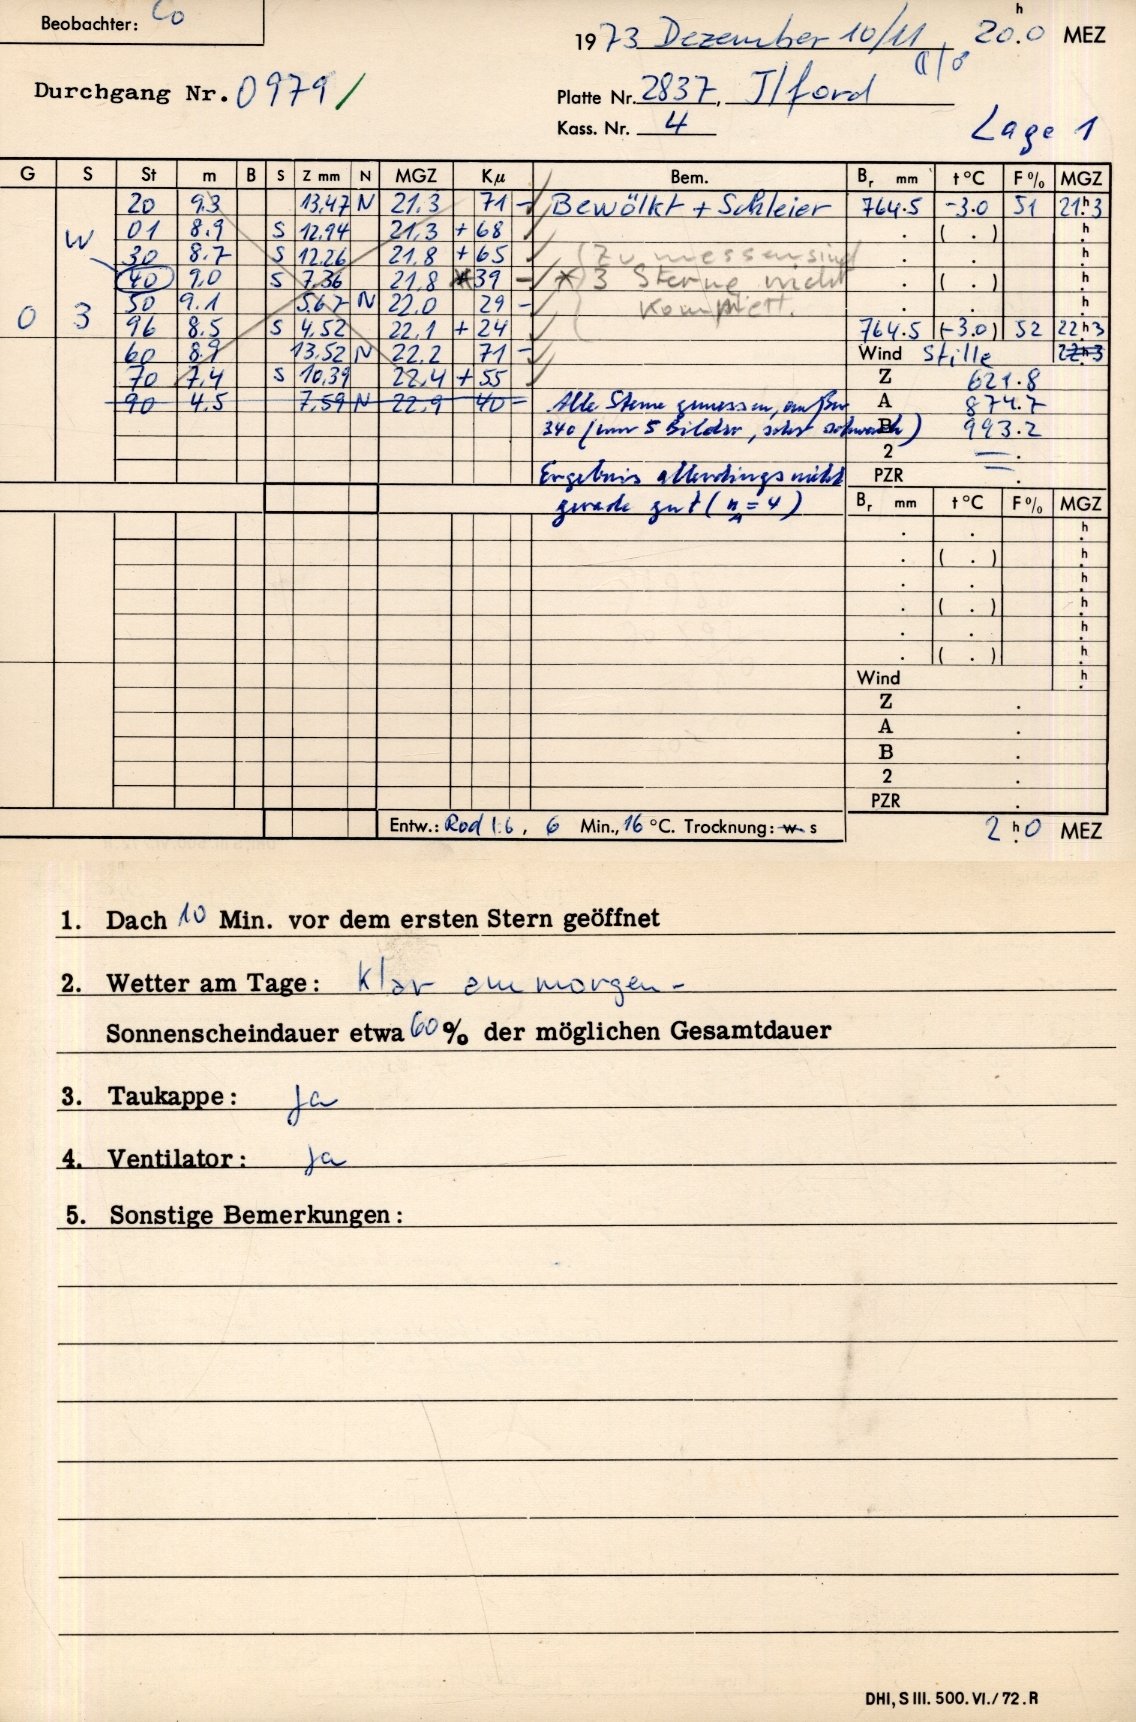 Beobachter: Co
1973 Dezember 10/11, 20h.0 MEZ
Durchgang Nr. 0979 /
Platte Nr. 2837, Ilford
Kass. Nr. 4
Lage 1
G S St m B S Z mm N MGZ Kµ Bem. Br mm t °C F % MGZ
20 9.3 13.47 N 21.3 71 - Bewölkt + Schleier 764.5 -3.0 51 21h.3
W 01 8.9 S 12.94 21.3 + 68 . ( . ) h.
30 8.7 S 12.26 21.8 + 65 (Zu messen sind . . h.
40 9.0 S 7.36 21.8 * 39 - * 3 Sterne nicht . ( . ) h.
50 9.1 5.67 N 22.0 29 - Komplett. . . h.
0 3 96 8.5 S 4.52 22.1 + 24 764.5 (-3.0) 52 22h.3
60 8.9 13.52 N 22.2 71 - Wind Stille 22h.3
70 7.4 S 10.39 22.4 + 55 Z 621.8
90 4.5 7.59 N 22.9 40 - Alle Sterne gemessen, außer A 874.7
340 (nur 5 Bilder, sehr schwach) B 993.2
2 — .
Ergebnis allerdings nicht PZR .
gerade gut (nA = 4) Br mm t °C F % MGZ
. . h.
. ( . ) h.
. . h.
. ( . ) h.
. . h.
. ( . ) h.
Wind h.
Z .
A .
B .
2 .
PZR .
Entw.: Rod 1:6, 6 Min., 16 °C. Trocknung: w s
2h.0 MEZ
1. Dach 10 Min. vor dem ersten Stern geöffnet
2. Wetter am Tage: Klar am morgen -
Sonnenscheindauer etwa 60 % der möglichen Gesamtdauer
3. Taukappe: Ja
4. Ventilator: Ja
5. Sonstige Bemerkungen:
DHI, S III. 500. VI./72. R